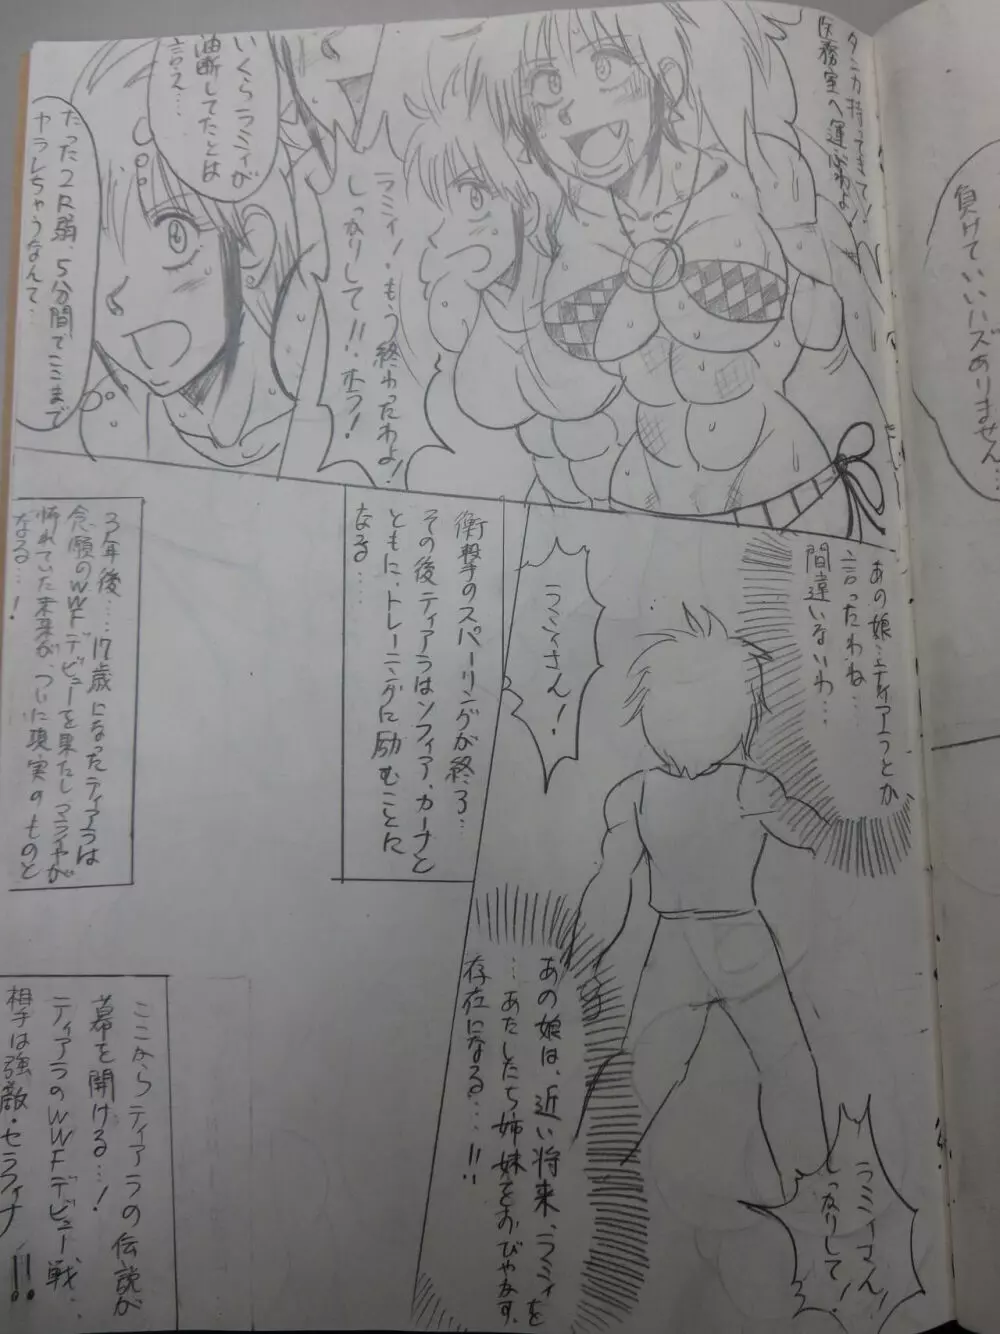 負けていいハズありません…
タンカ持ってきて!
医務室へ運ぶわよ!
ラミィ!もう終わったわよ!
しっかりして!!ホラ!
いくらラミィが
油断してたとは
言え…
たった2R弱、5分間でここまで
ヤラレちゃうなんて…
あの娘…ティアラっとか
言ったわね…
間違いないわ…
ラミィさん!
ラミィさん!
しっかりして!
あの娘は、近い将来、ラミィを
…あたしたち姉妹をおびやかす、
存在になる…!!
衝撃のスパーリングが終了…
その後ティアラはソフィア、カーナと
ともに、トレーニングに励むことに
なる…
3年後……17歳になったティアラは
念願のWWFデビューを果たしマライヤが
怖れていた未来が、ついに現実のものと
なる…!
ここからティアラの伝説が
幕を開ける…!
ティアラのWWFデビュー戦、
相手は強敵・セラフィナ!!